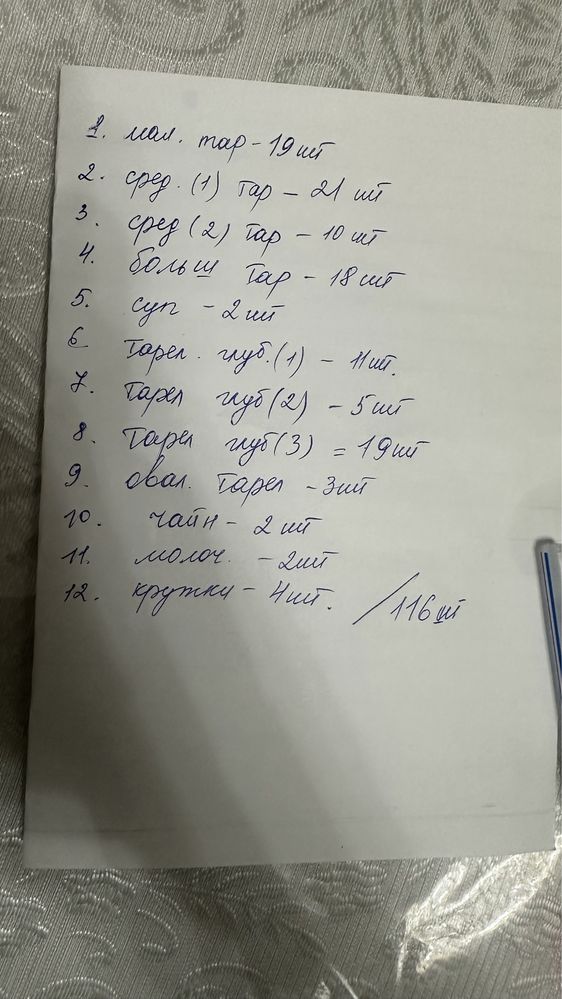 1. мал. тар - 19 шт
2. сред. (1) тар - 21 шт
3. сред (2) тар - 10 шт
4. больш тар - 18 шт
5. суп - 2 шт
6 тарел. глуб. (1) - 11 шт.
7. тарел глуб (2) - 5 шт
8. тарел глуб (3) = 19 шт
9. овал. тарел - 3 шт
10. чайн - 2 шт
11. молоч. - 2 шт
12. кружки - 4 шт. / 116 шт